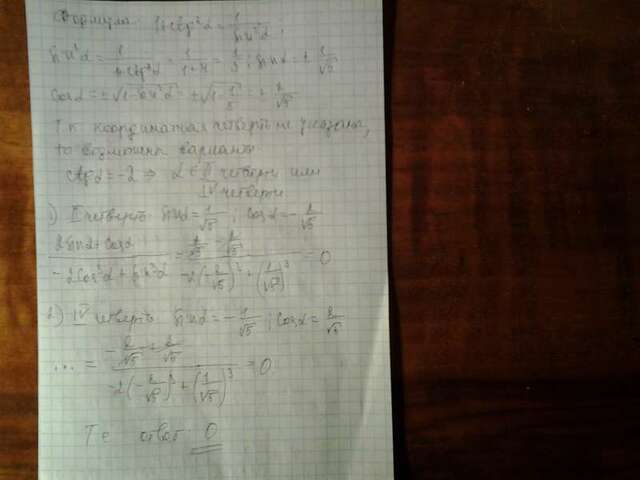 Формула: 1+ctg²α = 1/sin²α;
sin²α = 1/(1+ctg²α) = 1/(1+4) = 1/5; sinα = ± 1/√5
cosα = ±√(1-sin²α) = ±√(1-1/5) = ± 2/√5
Т.к. координатная четверть не указана,
то возможны варианты
ctgα = -2 ⇒ α ∈ II четверти или
IV четверти
1) II четверть sinα = 1/√5; cosα = - 2/√5
(2sinα + cosα)/(-2cos³α + sin³α) = (2/√5 - 2/√5)/(-2(-2/√5)³ + (1/√5)³) = 0
2) IV четверть sinα = - 1/√5; cosα = 2/√5
... = (-2/√5 + 2/√5)/(-2(-2/√5)³ + (1/√5)³) = 0
Т.е. ответ 0